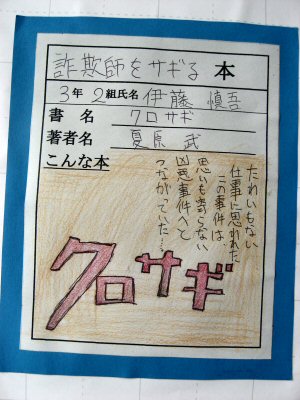 詐欺師をサギる 本
3年 2組氏名 伊藤 慎吾
書名 クロサギ
著者名 夏原 武
こんな本
たわいもない
仕事に思われた
この事件は
思いも寄らない
凶悪事件へと
つながっていた…。
クロサギ